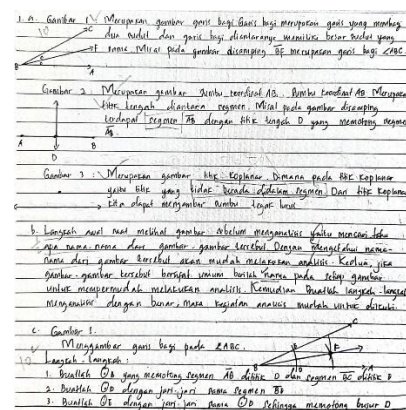 1. a. Gambar 1. Merupakan gambar garis bagi. Garis bagi merupakan garis yang membagi
dua sudut dan garis bagi diantaranya memiliki besar sudut yang
sama. Misal pada gambar disamping BF merupakan garis bagi ∠ABC.
C
F
B
A
Gambar 2. Merupakan gambar sumbu koordinat AB. Sumbu koordinat AB Merupakan
titik tengah diantara segmen. Misal pada gambar disamping
terdapat segmen AB dengan titik tengah D yang memotong segmen
AB.
A
B
D
Gambar 3. Merupakan gambar titik koplanar. Dimana pada titik koplanar
yaitu titik yang tidak berada didalam segmen. Dari titik koplanar
kita dapat menggambar sumbu tegak lurus.
b. Langkah awal saat melihat gambar sebelum menganalisis yaitu mencari tahu
apa nama-nama dari gambar-gambar tersebut. Dengan mengetahui nama-
nama dari gambar tersebut akan mudah melakukan analisis. Kedua, jika
gambar-gambar tersebut bersifat umum berilah nama pada setiap gambar
untuk mempermudah melakukan analisis. Kemudian buatlah langkah-langkah
menganalisis dengan benar, maka kegiatan analisis mudah untuk
c. Gambar 1.
10
Menggambar garis bagi pada ∠ABC.
Langkah-langkah:
1. Buatlah ⊙B yang memotong segmen AB dititik D dan segmen BC dititik E
2. Buatlah ⊙D dengan jari-jari sama segmen BD
3. Buatlah ⊙E dengan jari-jari sama ⊙D sehingga memotong busur D
C
E
F
B
D
A